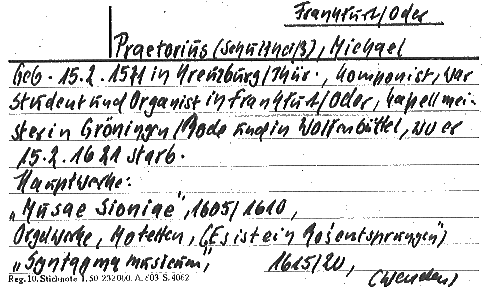 Frankfurt/Oder
Praetorius (Schultheiß), Michael
Geb. 15.2.1571 in Kreuzburg/Thür., Komponist, war
Student und Organist in Frankfurt/Oder, Kapellmei-
ster in Gröningen/Bode und in Wolfenbüttel, wo er
15.2.1621 starb.
Hauptwerke:
„Musae Sioniae", 1605/1610,
Orgelwerke, Motetten, („Es ist ein Ros' entsprungen")
„Syntagma musicum", 1615/20,
(wenden)
Reg. 10. Stichnote 1. 50 232 0/0. A. 603 S. 4062